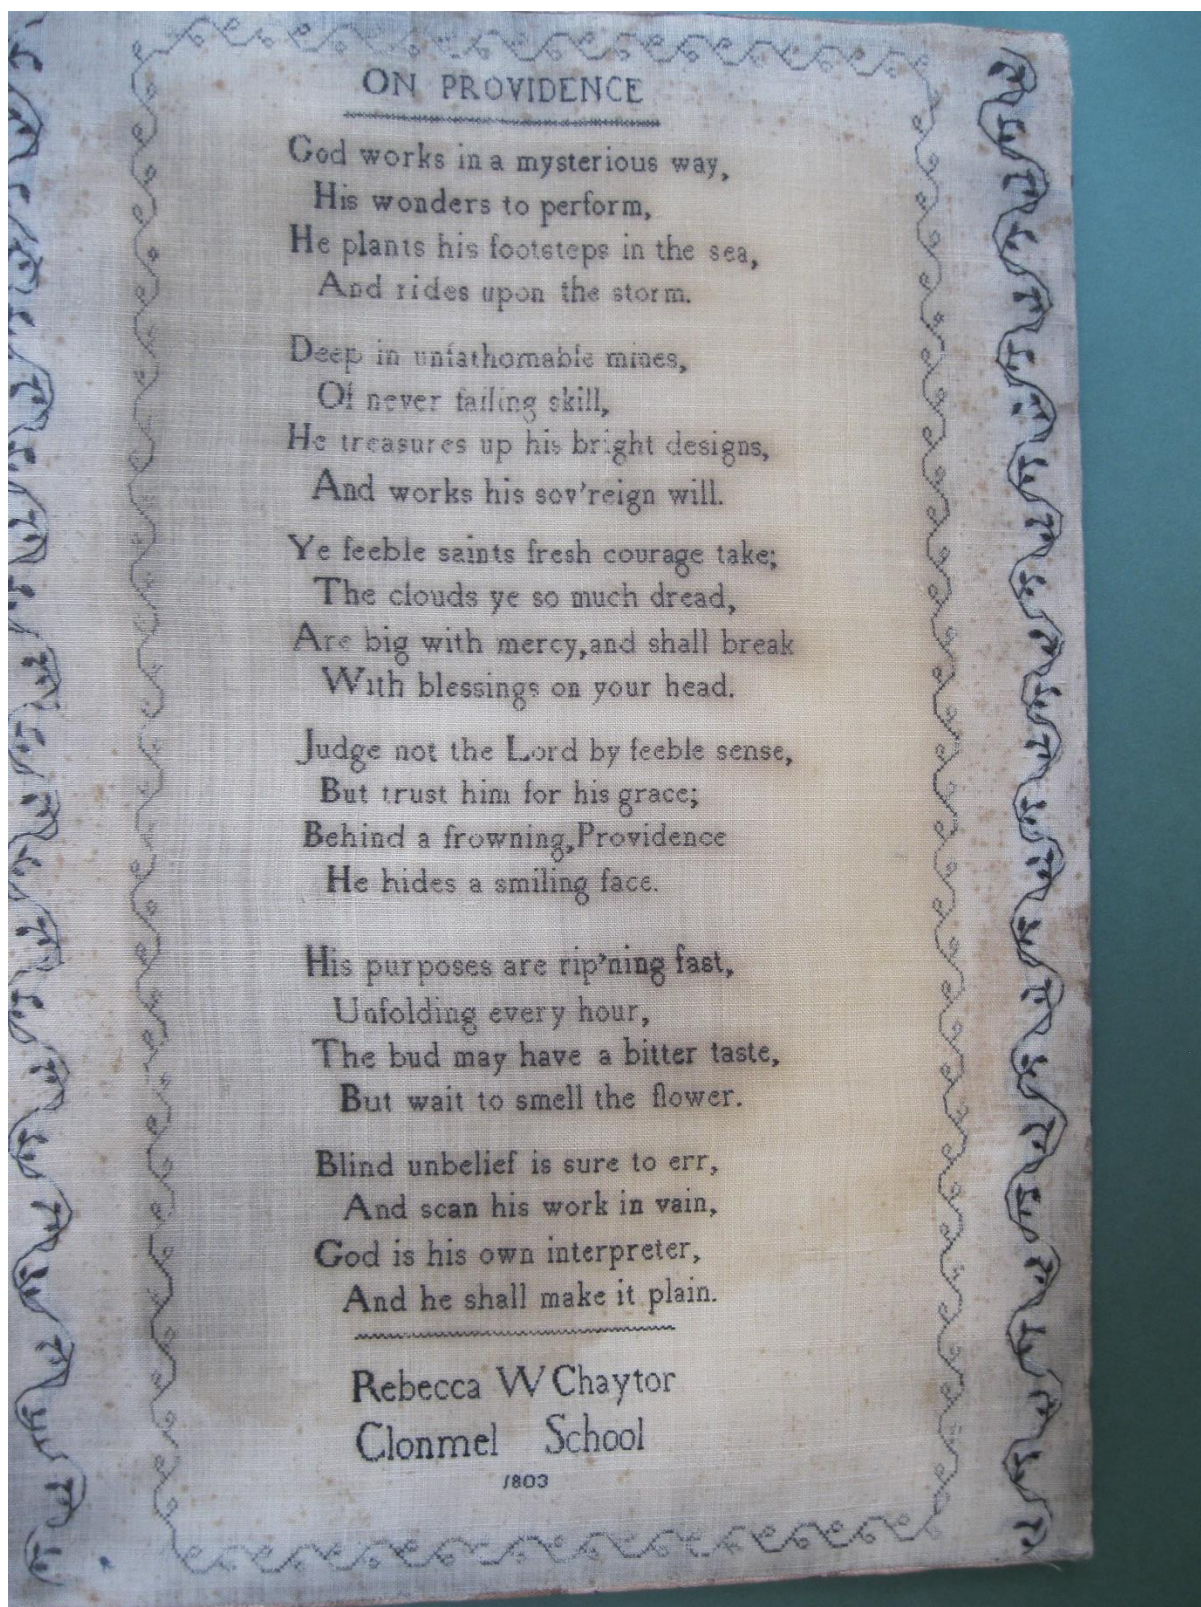 ON PROVIDENCE
God works in a mysterious way,
His wonders to perform,
He plants his footsteps in the sea,
And rides upon the storm.
Deep in unfathomable mines,
Of never failing skill,
He treasures up his bright designs,
And works his sov'reign will.
Ye feeble saints fresh courage take;
The clouds ye so much dread,
Are big with mercy, and shall break
With blessings on your head.
Judge not the Lord by feeble sense,
But trust him for his grace;
Behind a frowning, Providence
He hides a smiling face.
His purposes are rip'ning fast,
Unfolding every hour,
The bud may have a bitter taste,
But wait to smell the flower.
Blind unbelief is sure to err,
And scan his work in vain,
God is his own interpreter,
And he shall make it plain.
Rebecca W Chaytor
Clonmel School
1803